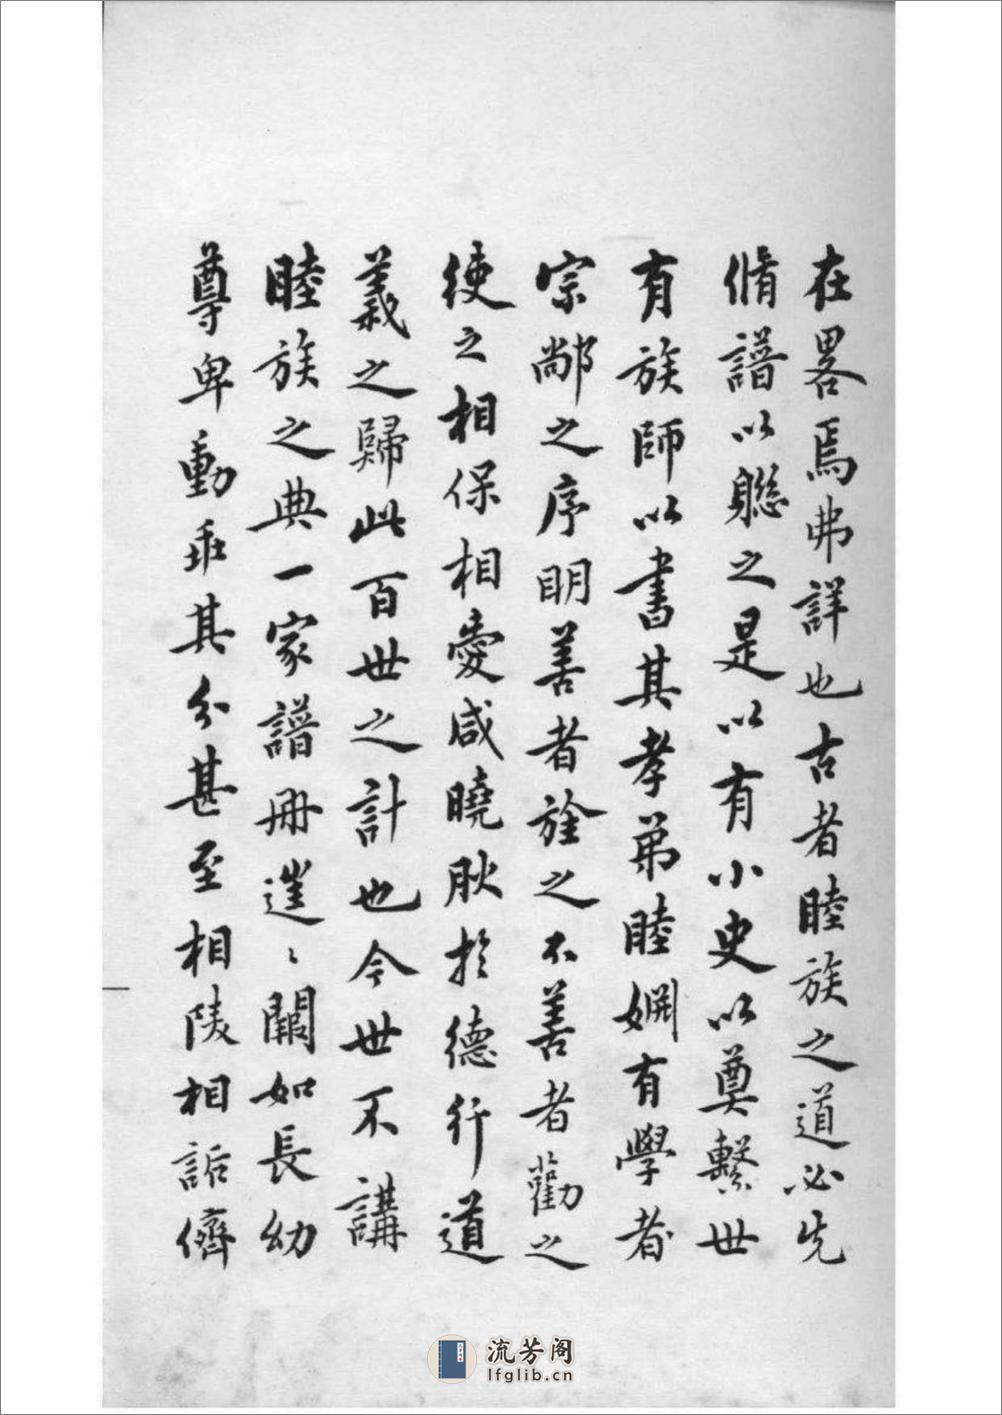 在畧焉弗詳也古者睦族之道必先
脩譜以聮之是以有小史以奠繫世
有族師以書其孝弟睦婣有學者
宗䣊之序明善者旌之不善者勸之
使之相保相愛咸曉耿於德行道
義之歸此百世之計也今世不講
睦族之典一家譜冊〻闕如長幼
尊卑動乖其分甚至相陵相詬儕
流芳阁
lfglib.cn